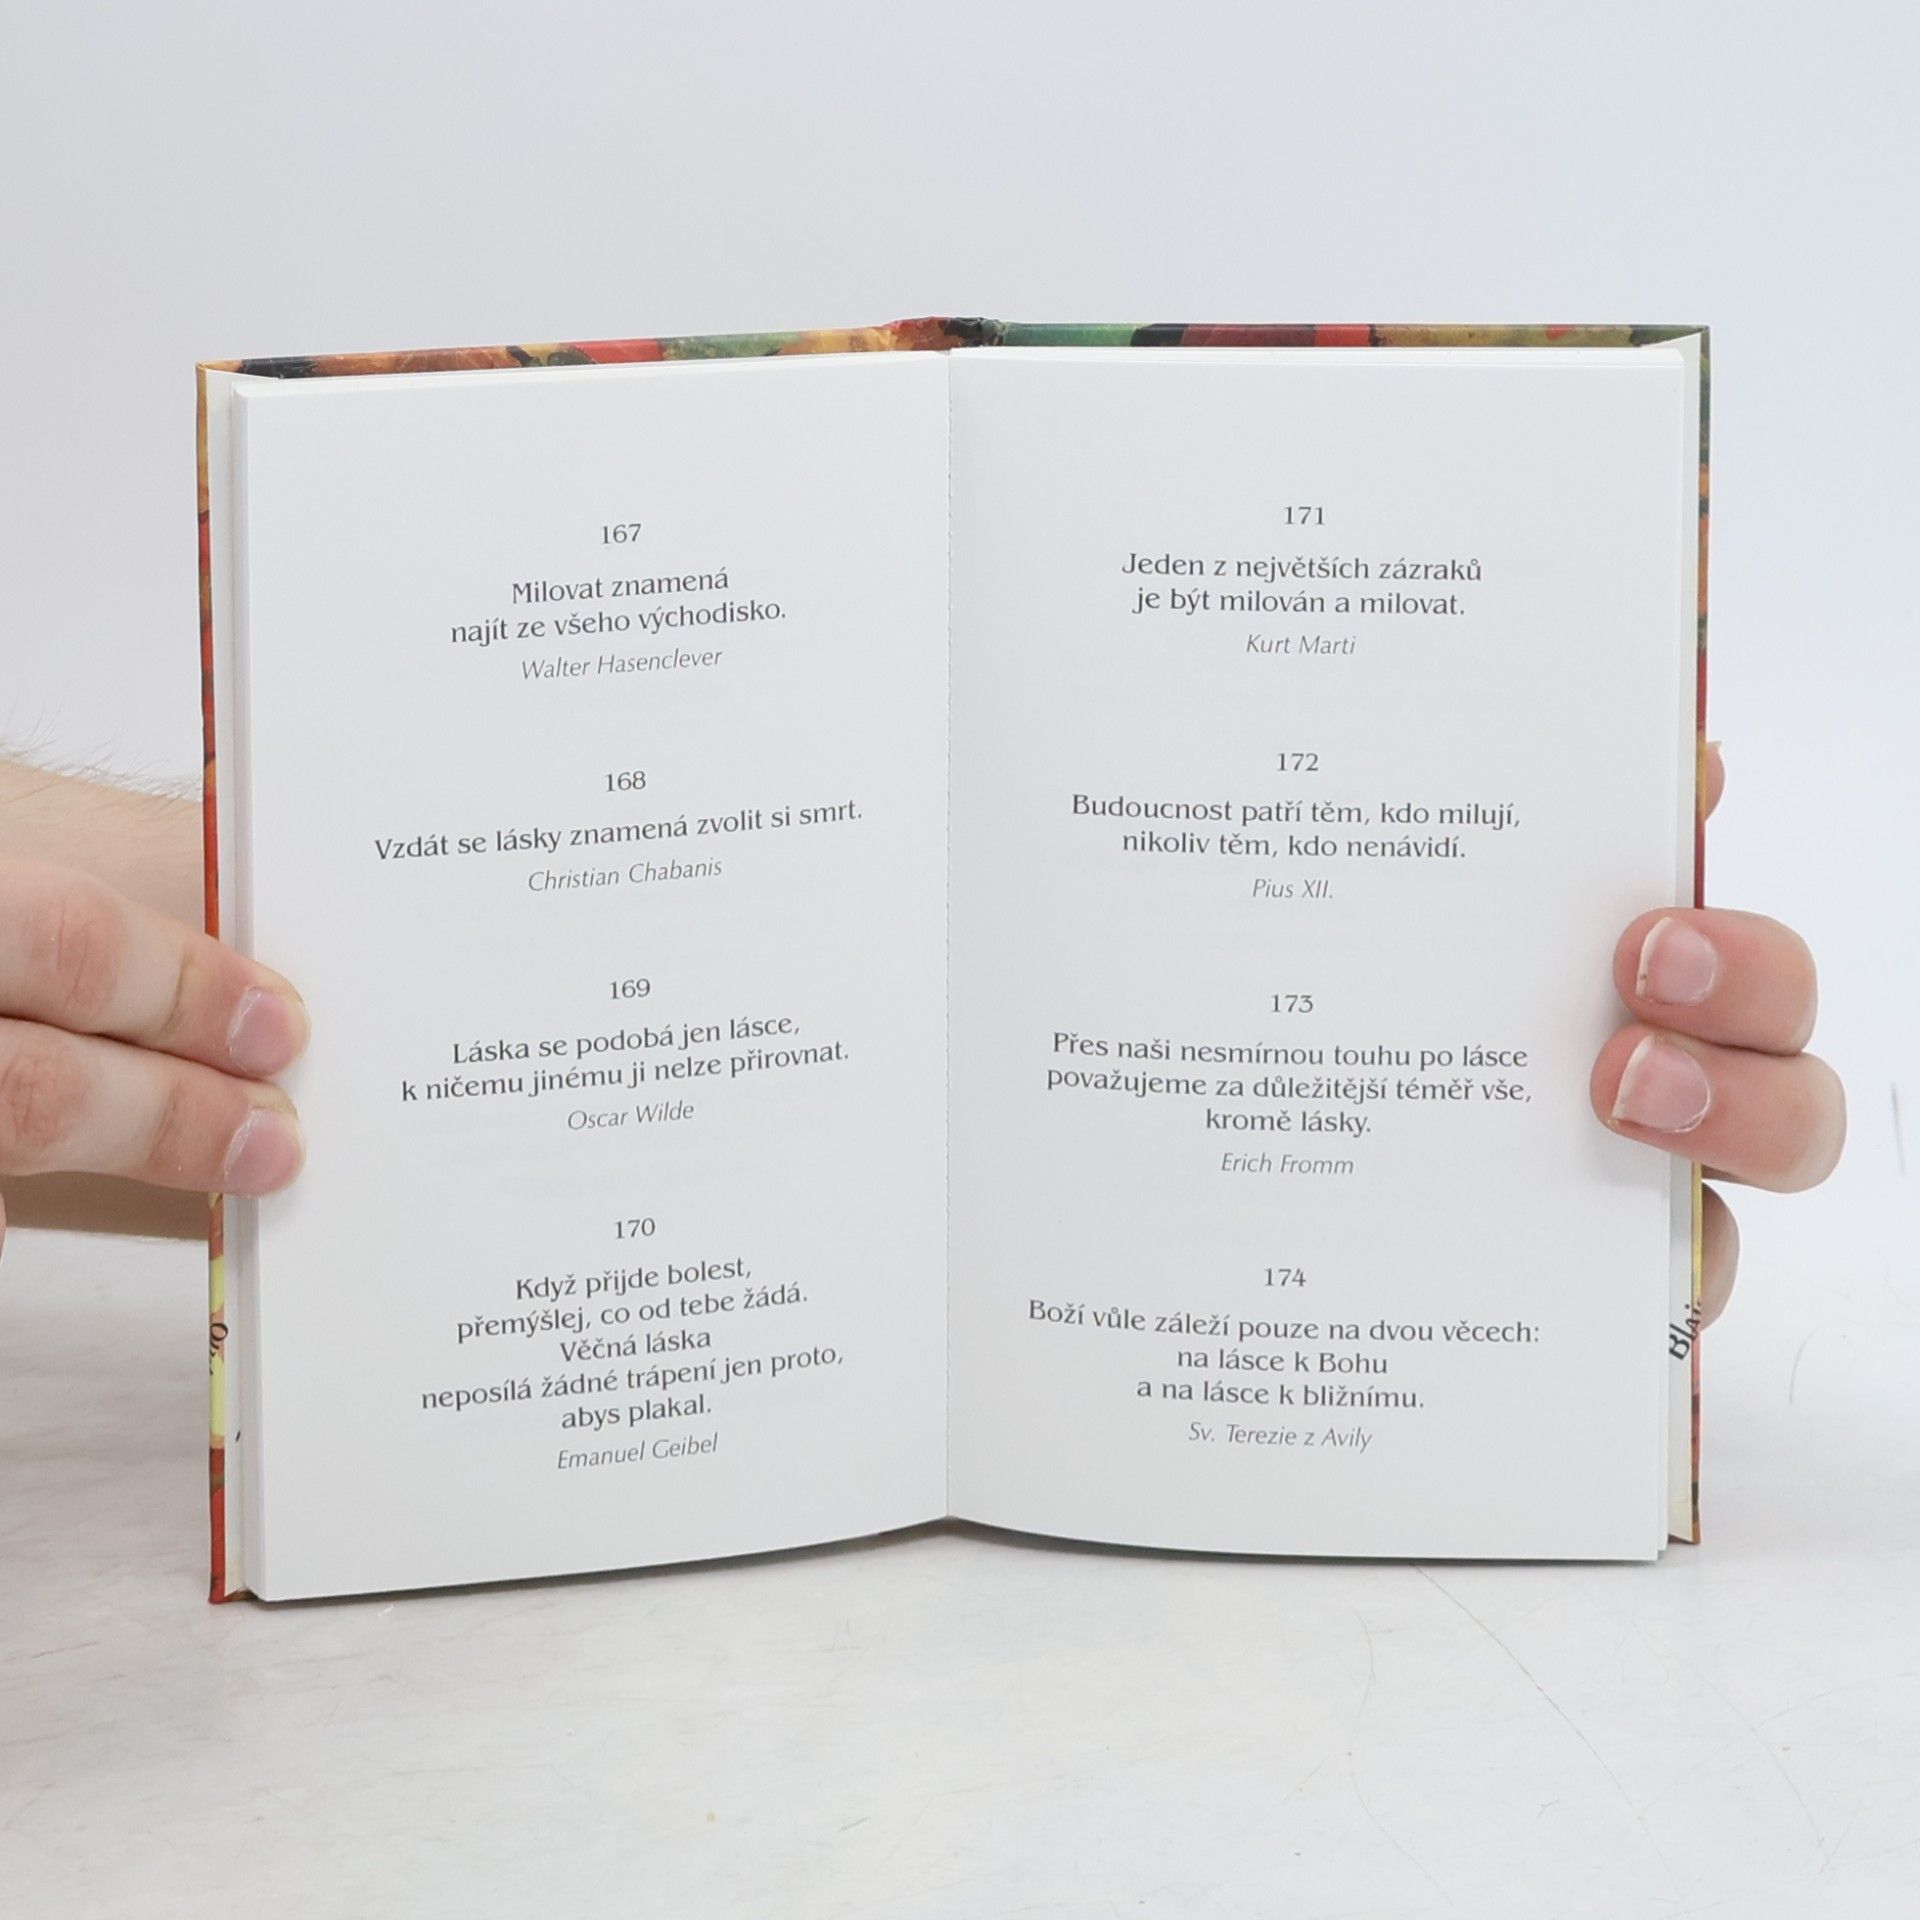 167
Milovat znamená
najít ze všeho východisko.
Walter Hasenclever
168
Vzdát se lásky znamená zvolit si smrt.
Christian Chabanis
169
Láska se podobá jen lásce,
k ničemu jinému ji nelze přirovnat.
Oscar Wilde
170
Když přijde bolest,
přemýšlej, co od tebe žádá.
Věčná láska
neposílá žádné trápení jen proto,
abys plakal.
Emanuel Geibel
171
Jeden z největších zázraků
je být milován a milovat.
Kurt Marti
172
Budoucnost patří těm, kdo milují,
nikoliv těm, kdo nenávidí.
Pius XII.
173
Přes naši nesmírnou touhu po lásce
považujeme za důležitější téměř vše,
kromě lásky.
Erich Fromm
174
Boží vůle záleží pouze na dvou věcech:
na lásce k Bohu
a na lásce k bližnímu.
Sv. Terezie z Avily